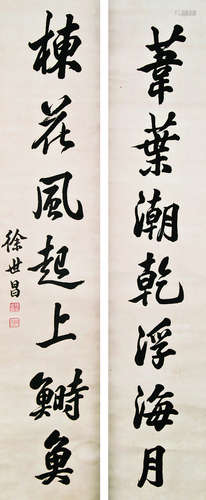 葦葉潮乾浮海月
楝花風起上鰣魚
徐世昌